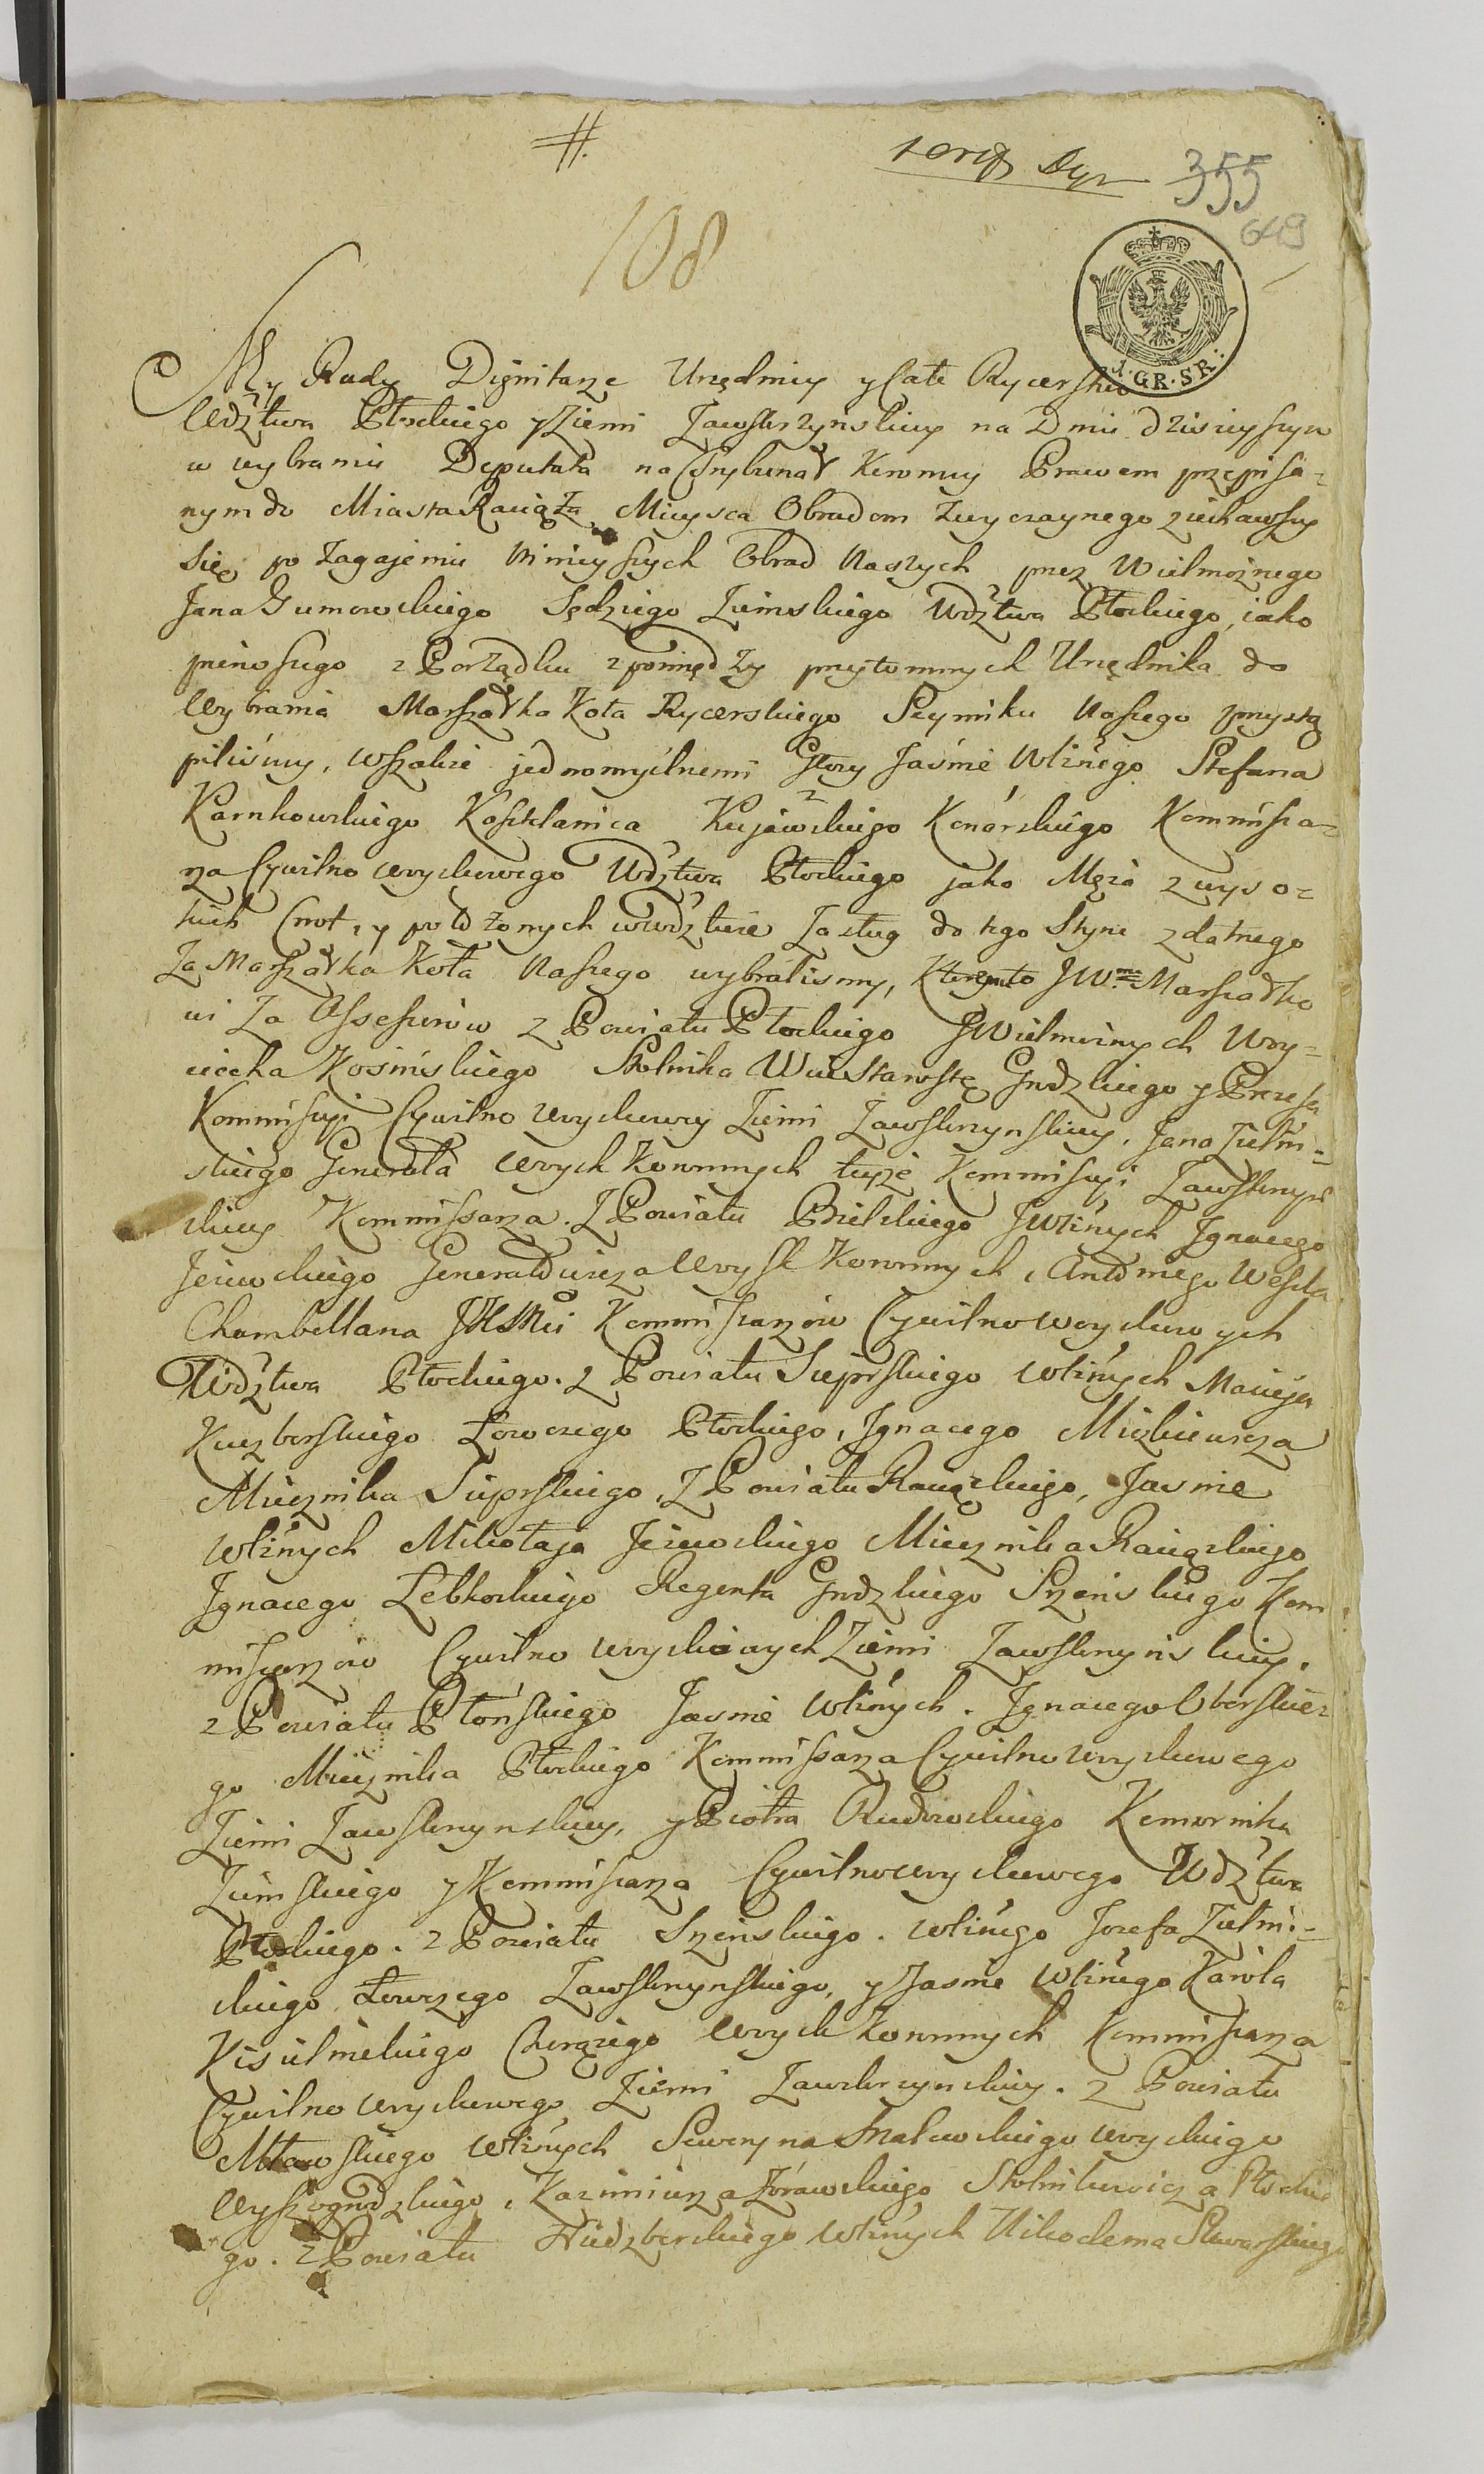 #.
355
649
108
1·GR·SR:
My Rady Dignitarze Urzędnicy y Całe Rycerstwo
Wdztwa Płockiego y Ziemi Zawskrzyńskiey na Dniu dzisieyszym
w wybraniu Deputata na Trybunał Koronny Prawem przepisa=
nym do Miasta Raciąża Mieysca Obradom zwyczaynego ziechawszy
się po zagajeniu ninieyszych Obrad naszych przez Wielmożnego
Jana Gumowskiego Sędziego Ziemskiego Wdztwa Płockiego, iako
pierwszego z Porządku z pomiędzy przytomnych Urzędnika do
wybrania Marszałka Koła Rycerskiego Seymiku naszego przystą
piliśmy, wszakże jednomyślnemi Głosy Jaśnie Wlżnego Stefana
Karnkowskiego Kasztelanica Kujawskiego Konarskiego Kommissa=
rza Cywilno woyskowego Wdztwa Płockiego jako Męża z wyso=
kich Cnot, y położonych w Wdztwie Zasług do tego Steru zdatnego
Za Marszałka Koła naszego wybraliśmy, Któremuto JW.mu Marszałko
wi Za Assessorów z Powiatu Płockiego JWielmożnych Woy=
ciecha Kosińskiego Stolnika Wice Starostę Grodzkiego y Prezesa
Kommissyi Cywilno woyskowey Ziemi Zawskrzynskiey, Jana Zieliń=
skiego Generała Woysk Koronnych teyże Kommissyi Zawskrzyń
skiey Kommissarza. Z Powiatu Bielskiego JWlżnych Ignacego
Jeżewskiego Generałowicza Woysk Koronnych, Antoniego Wessla
Chambellana JKMci Kommissarzów Cywilno woyskowych
Wdztwa Płockiego. z Powiatu Sierpskiego Wlżnych Macieja
Kuczborskiego Łowczego Płockiego, Ignacego Mieszkiewicza
Miecznika Sierpskiego, Z Powiatu Raciązkiego, Jaśnie
Wlżnych Mikołaja Jeżewskiego Miecznika Raciązkiego
Ignacego Łebkowskiego Regenta Grodzkiego Szreńskiego Kom
missarzów Cywilno woyskowych Ziemi Zawskrzyńskiey.
z Powiatu Płońskiego Jaśnie Wlżnych. Ignacego Oborskie=
go Miecznika Płockiego Kommissarza Cywilno woyskowego
Ziemi Zawskrzynskiey, y Piotra Rudowskiego Komornika
Ziemskiego y Kommissarza Cywilno woyskowego Wdztwa
Płockiego. z Powiatu Szreńskiego. Wlżnego Jozefa Zieliń=
skiego Łowczego Zawskrzynskiego, y Jaśnie Wlżnego Karola
Kisielnickiego Chorążego Woysk Koronnych Kommissarza
Cywilno woyskowego Ziemi Zawskrzynskiey. z Powiatu
Mławskiego Wlżnych Seweryna Smolewskiego Woyskiego
Wyszogrodzkiego, Kazimierza Żórawskiego Stolnikowicza Płockie
go. z Powiatu Niedzborskiego Wlżnych Nikodema Suwarskiego